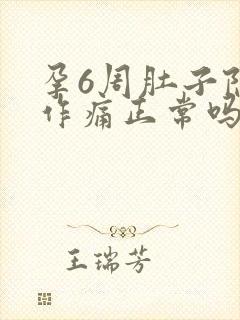 孕6周肚子阵
作痛正常吗
王瑞芳